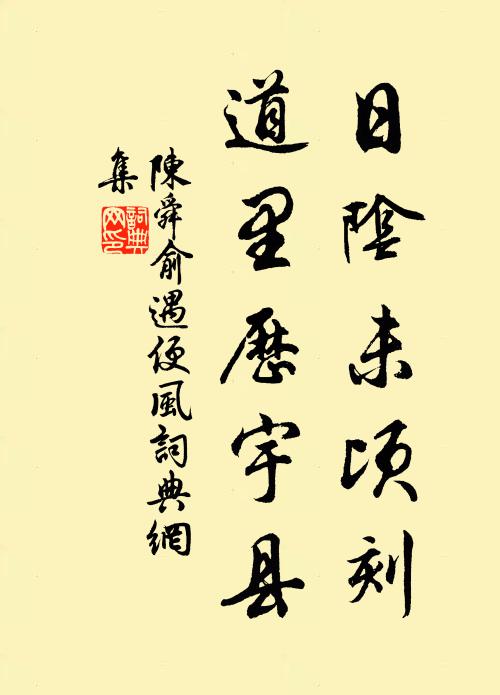 日陰未頃刻
道里歷宇县
陳舜俞遇便風詞典網
集
詞典
网印